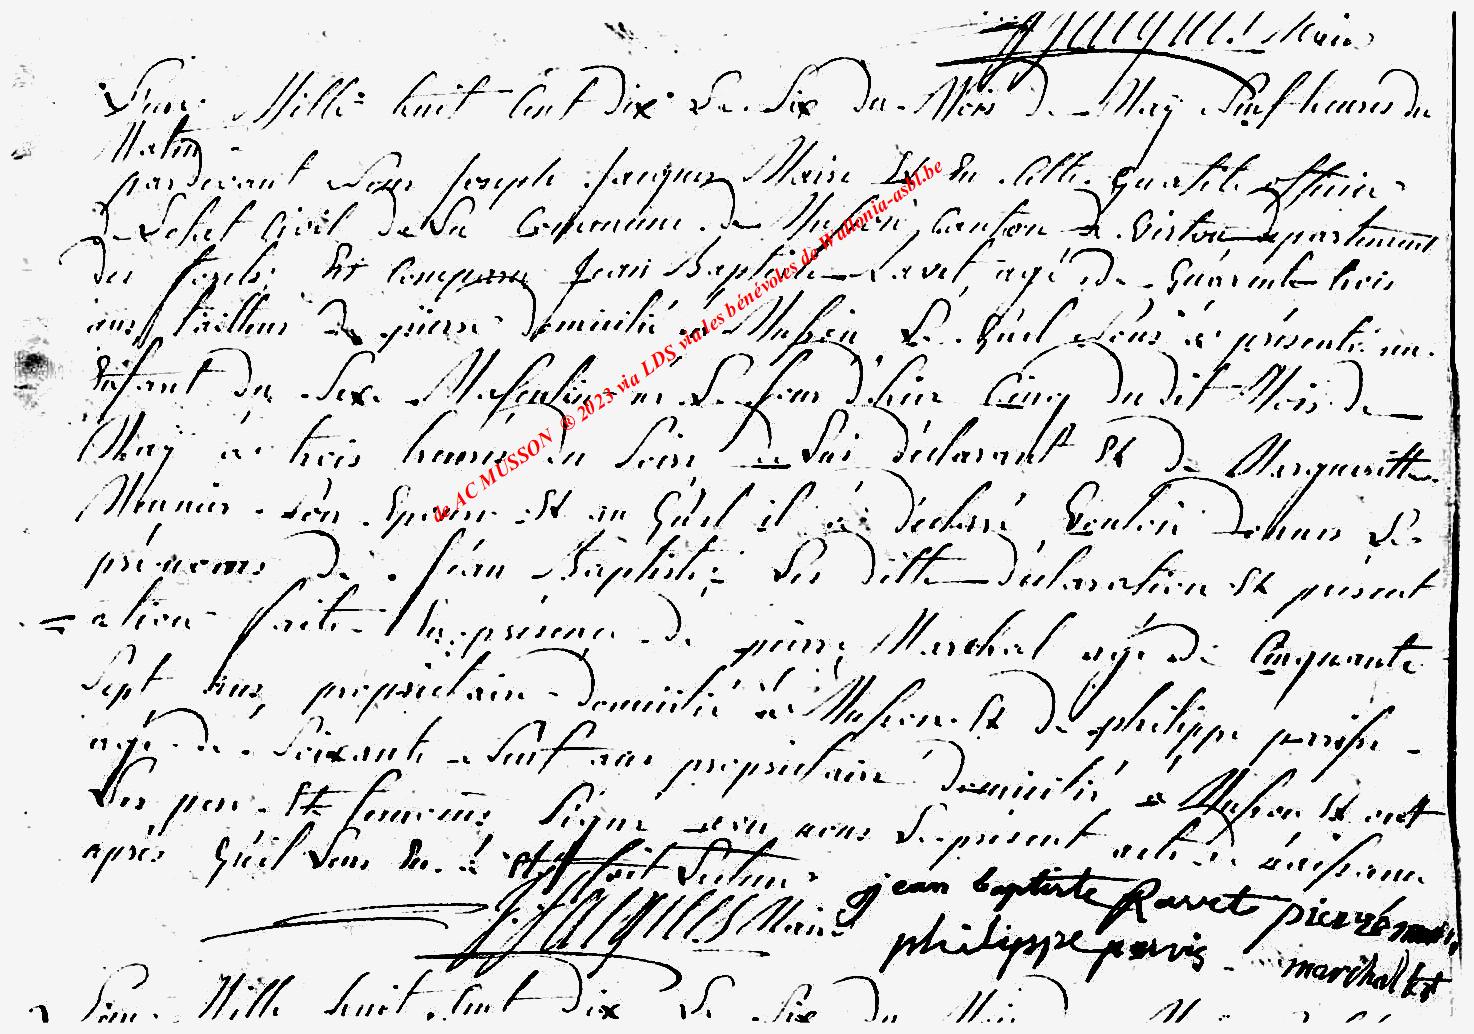 Jacques Maire
L'an Mille huit Cent dix Le Six du Mois de May Neuf heures du
Matin
pardevant Nous Joseph Jacques Maire Et En Cette Qualité officier
de L'état Civil de La Commune de Musson, Canton de Virton departement
des forets, Est Comparu Jean Baptiste Ravet, agé de Quarente trois
ans tailleur de pierre domicilié a Musson Le Quel Nous a présenté un
Enfant du Sexe Masculin né Le Jour d'hier Cinq dudit Mois de
May a trois heures du Soir de Lui déclarant Et de Margueritte
Meunier Son Epouse Et au Quel il a déclaré Vouloir donner Les
prénoms de Jean Baptiste Les dittes déclaration Et présent
ation faite En présence de pierre Marchal agé de Cinquante
Sept ans, proprietaire domicilié a Musson Et de philippe
agé de Soixante Neuf ans proprietaire domicilié a Musson Et ont
Les pere Et temoins Signé avec nous Le présent acte de naissance
après Qu'il Leur En a Eté fait Lecture
J. JACQUES Maire jean baptiste Ravet pierre
philippe pervis marchal
L'an Mille huit Cent dix Le Six du Mois de May
de AC MUSSON ® 2023 via LDS via les bénévoles de Wallonia-asbl.be